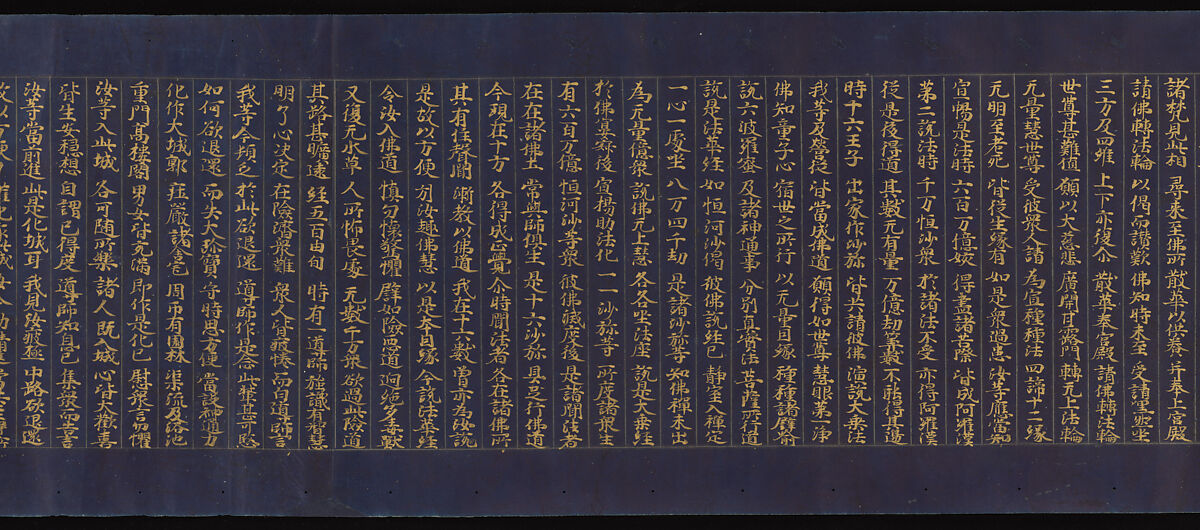 諸梵見此相 尋来至佛所 散華以供養 并奉上宮殿
請佛轉法輪 以偈而讃歎 佛知時未至 受請黙然坐
三方及四維 上下亦復尒 散華奉宮殿 請佛轉法輪
世尊甚難值 願以大慈悲 廣開甘露門 轉无上法輪
无量慧世尊 受彼衆人請 為宣種種法 四諦十二縁
无明至老死 皆從生縁有 如是衆過患 汝等應當知
宣暢是法時 六百万億姟 得盡諸苦際 皆成阿羅漢
第二說法時 千万恒沙衆 於諸法不受 亦得阿羅漢
從是後得道 其數无有量 万億劫筭數 不能得其邊
時十六王子 出家作沙弥 皆共請彼佛 演說大乗法
我等及營從 皆當成佛道 願得如世尊 慧眼第一淨
佛知童子心 宿世之所行 以无量因縁 種種諸譬喻
說六波羅蜜 及諸神通事 分別真實法 菩薩所行道
說是法華經 如恒河沙偈 彼佛說經已 靜室入禪定
一心一處坐 八万四千劫 是諸沙弥等 知佛禪未出
為无量億衆 說佛无上慧 各各坐法座 說是大乗經
於佛宴寂後 宣揚助法化 一一沙弥等 所度諸衆生
有六百万億 恒河沙等衆 彼佛滅度後 是諸聞法者
在在諸佛土 常與師俱生 是十六沙弥 具足行佛道
今現在十方 各得成正覺 尒時聞法者 各在諸佛所
其有住聲聞 漸教以佛道 我在十六數 曾亦為汝說
是故以方便 引汝趣佛慧 以是本因縁 今說法華經
令汝入佛道 慎勿懷驚懼 譬如險惡道 迥絶多毒獸
又復无水草 人所怖畏處 无數千万衆 欲過此險道
其路甚曠遠 經五百由旬 時有一導師 強識有智慧
明了心決定 在險濟衆難 衆人皆疲惓 而白導師言
我等今頓乏 於此欲退還 導師作是念 此輩甚可愍
如何欲退還 而失大珍寶 尋時思方便 當設神通力
化作大城郭 莊嚴諸舍宅 周帀有園林 渠流及浴池
重門髙樓閣 男女皆充滿 即作是化已 慰衆言勿懼
汝等入此城 各可随所樂 諸人既入城 心皆大歡喜
皆生安穩想 自謂已得度 導師知息已 集衆而告言
汝等當前進 此是化城耳 我見汝疲極 中路欲退還